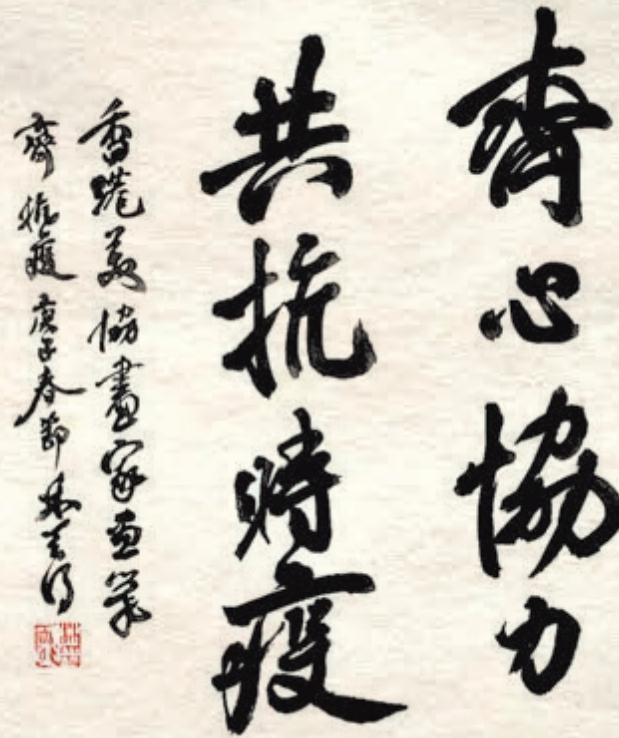 齊心協力
共抗時疫
香港美協畫家畫筆
齊抗疫 庚子春節 林天行